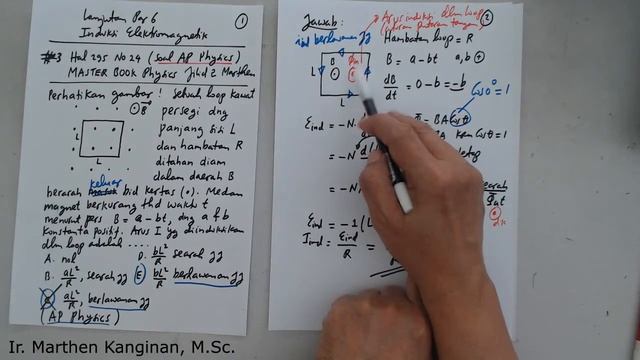 Lanjutan Par 6
Induksi Elektromagnetik
①
#3 Hal 295 No 24 (Soal AP Physics)
MASTER BOOK Physics Jilid 2 Marthen
Perhatikan gambar! sebuah loop kawat
B
persegi dng
panjang sisi L
dan hambatan R
ditahan diam
dalam daerah B
L
L
keluar
berarah bid kertas (•). Medan
magnet berkurang thd waktu t
menurut pers B = a - bt, dng a & b
konstanta positif. Arus I yg diinduksikan
dlm loop adalah ....
A. nol
D. bL²/R searah jj
B. aL²/R, searah jj
E. bL²/R berlawanan jj
C. aL²/R, berlawanan jj
(AP Physics)
Jawab:
Arus induksi dlm loop
(aturan putaran tangan)
②
ind berlawanan jj
Hambatan loop = R
L
L
B = a - bt a,b ⊕
dB/dt = 0 - b = -b
Cos 0° = 1
Eind = -N
BA Cos θ
Cos θ = 1
= -N d
= -N
searah
Eind = -1 (L
Iind = Eind/R =
Ir. Marthen Kanginan, M.Sc.